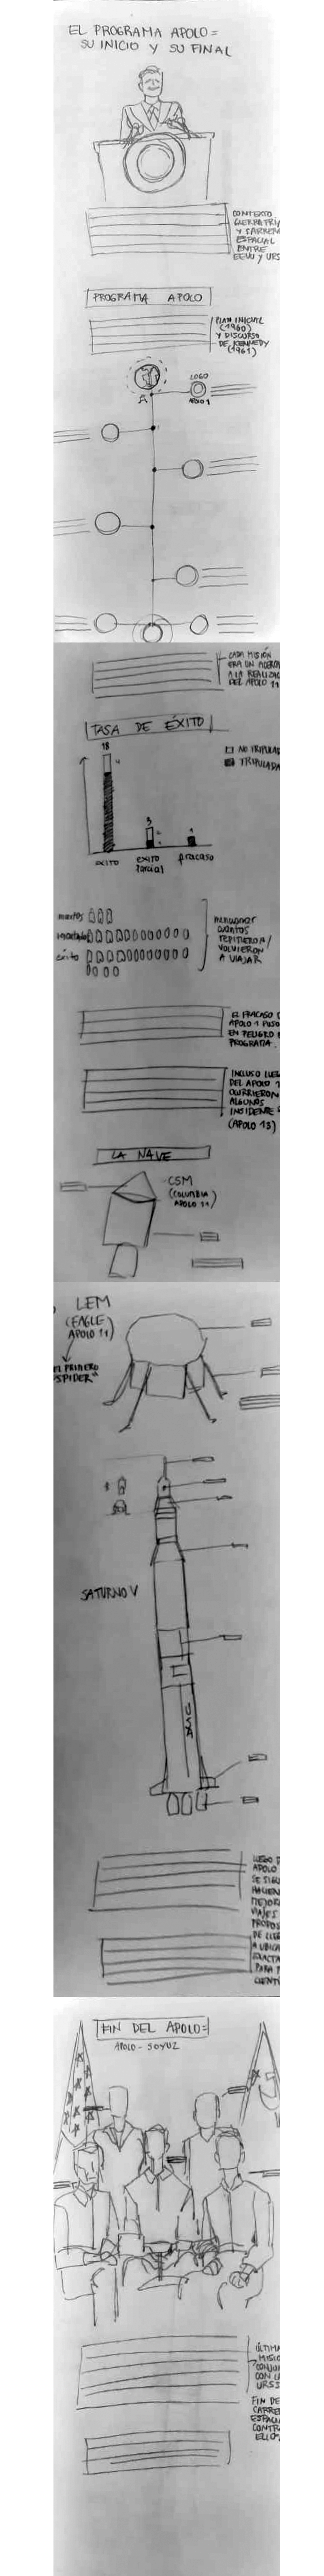 EL PROGRAMA APOLO =
SU INICIO Y SU FINAL
CONTEXTO
Y CARRERA
ESPACIAL
ENTRE
EEUU Y URS
PROGRAMA APOLO
PLAN INICIAL
(1960)
Y DISCURSO
DE KENNEDY
(1961)
LOGO
APOLO 1
A
CADA MISIÓN
ERA UN
A LA REALIZAC
DEL APOLO 11
TASA DE ÉXITO
18
4
3
1
NO TRIPULAD
TRIPULADA
éxito
éxito
parcial
fracaso
muertos
éxito
cuántos
repitieron /
volvieron
a viajar
EL FRACASO D
APOLO 1 PUSO
EN PELIGRO
PROGRAMA.
INCLUSO LUEG
DEL APOLO 1
OCURRIERON
ALGUNOS
INCIDENTE
(APOLO 13)
LA NAVE
CSM
(COLUMBIA
APOLO 11)
LEM
(EAGLE
APOLO 11)
EL PRIMERO
"SPIDER"
SATURNO V
USA
LUEGO D
APOLO
SE SIGU
HACIEN
MEJOR
VIAJES
PROPOS
DE LLE
A UBICA
EXACTA
PARA
CIENTÍ
FIN DEL APOLO=
APOLO - SOYUZ
ÚLTIMA
MISIÓ
CONJUN
CON L
URSS
FIN DE
CARRE
ESPACI
CONTR